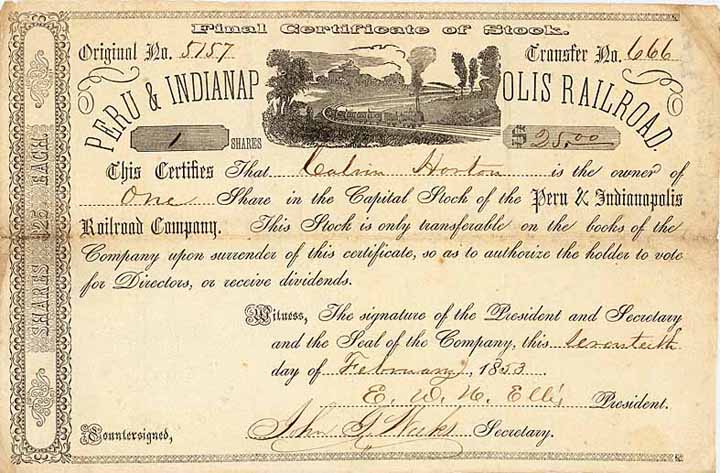 Final Certificate of Stock.
Original No. 5157 Transfer No. 666
PERU & INDIANAPOLIS RAILROAD.
1 SHARES $ 25.00
This Certifies That Calvin Horton is the owner of
One Share in the Capital Stock of the Peru & Indianapolis
Railroad Company. This Stock is only transferable on the books of the
Company upon surrender of this certificate, so as to authorize the holder to vote
for Directors, or receive dividends.
Witness, The signature of the President and Secretary
and the Seal of the Company, this seventeeth
day of February, 1853
E. W. H. Ellis President.
Countersigned, John Secretary.
SHARES $25 EACH.